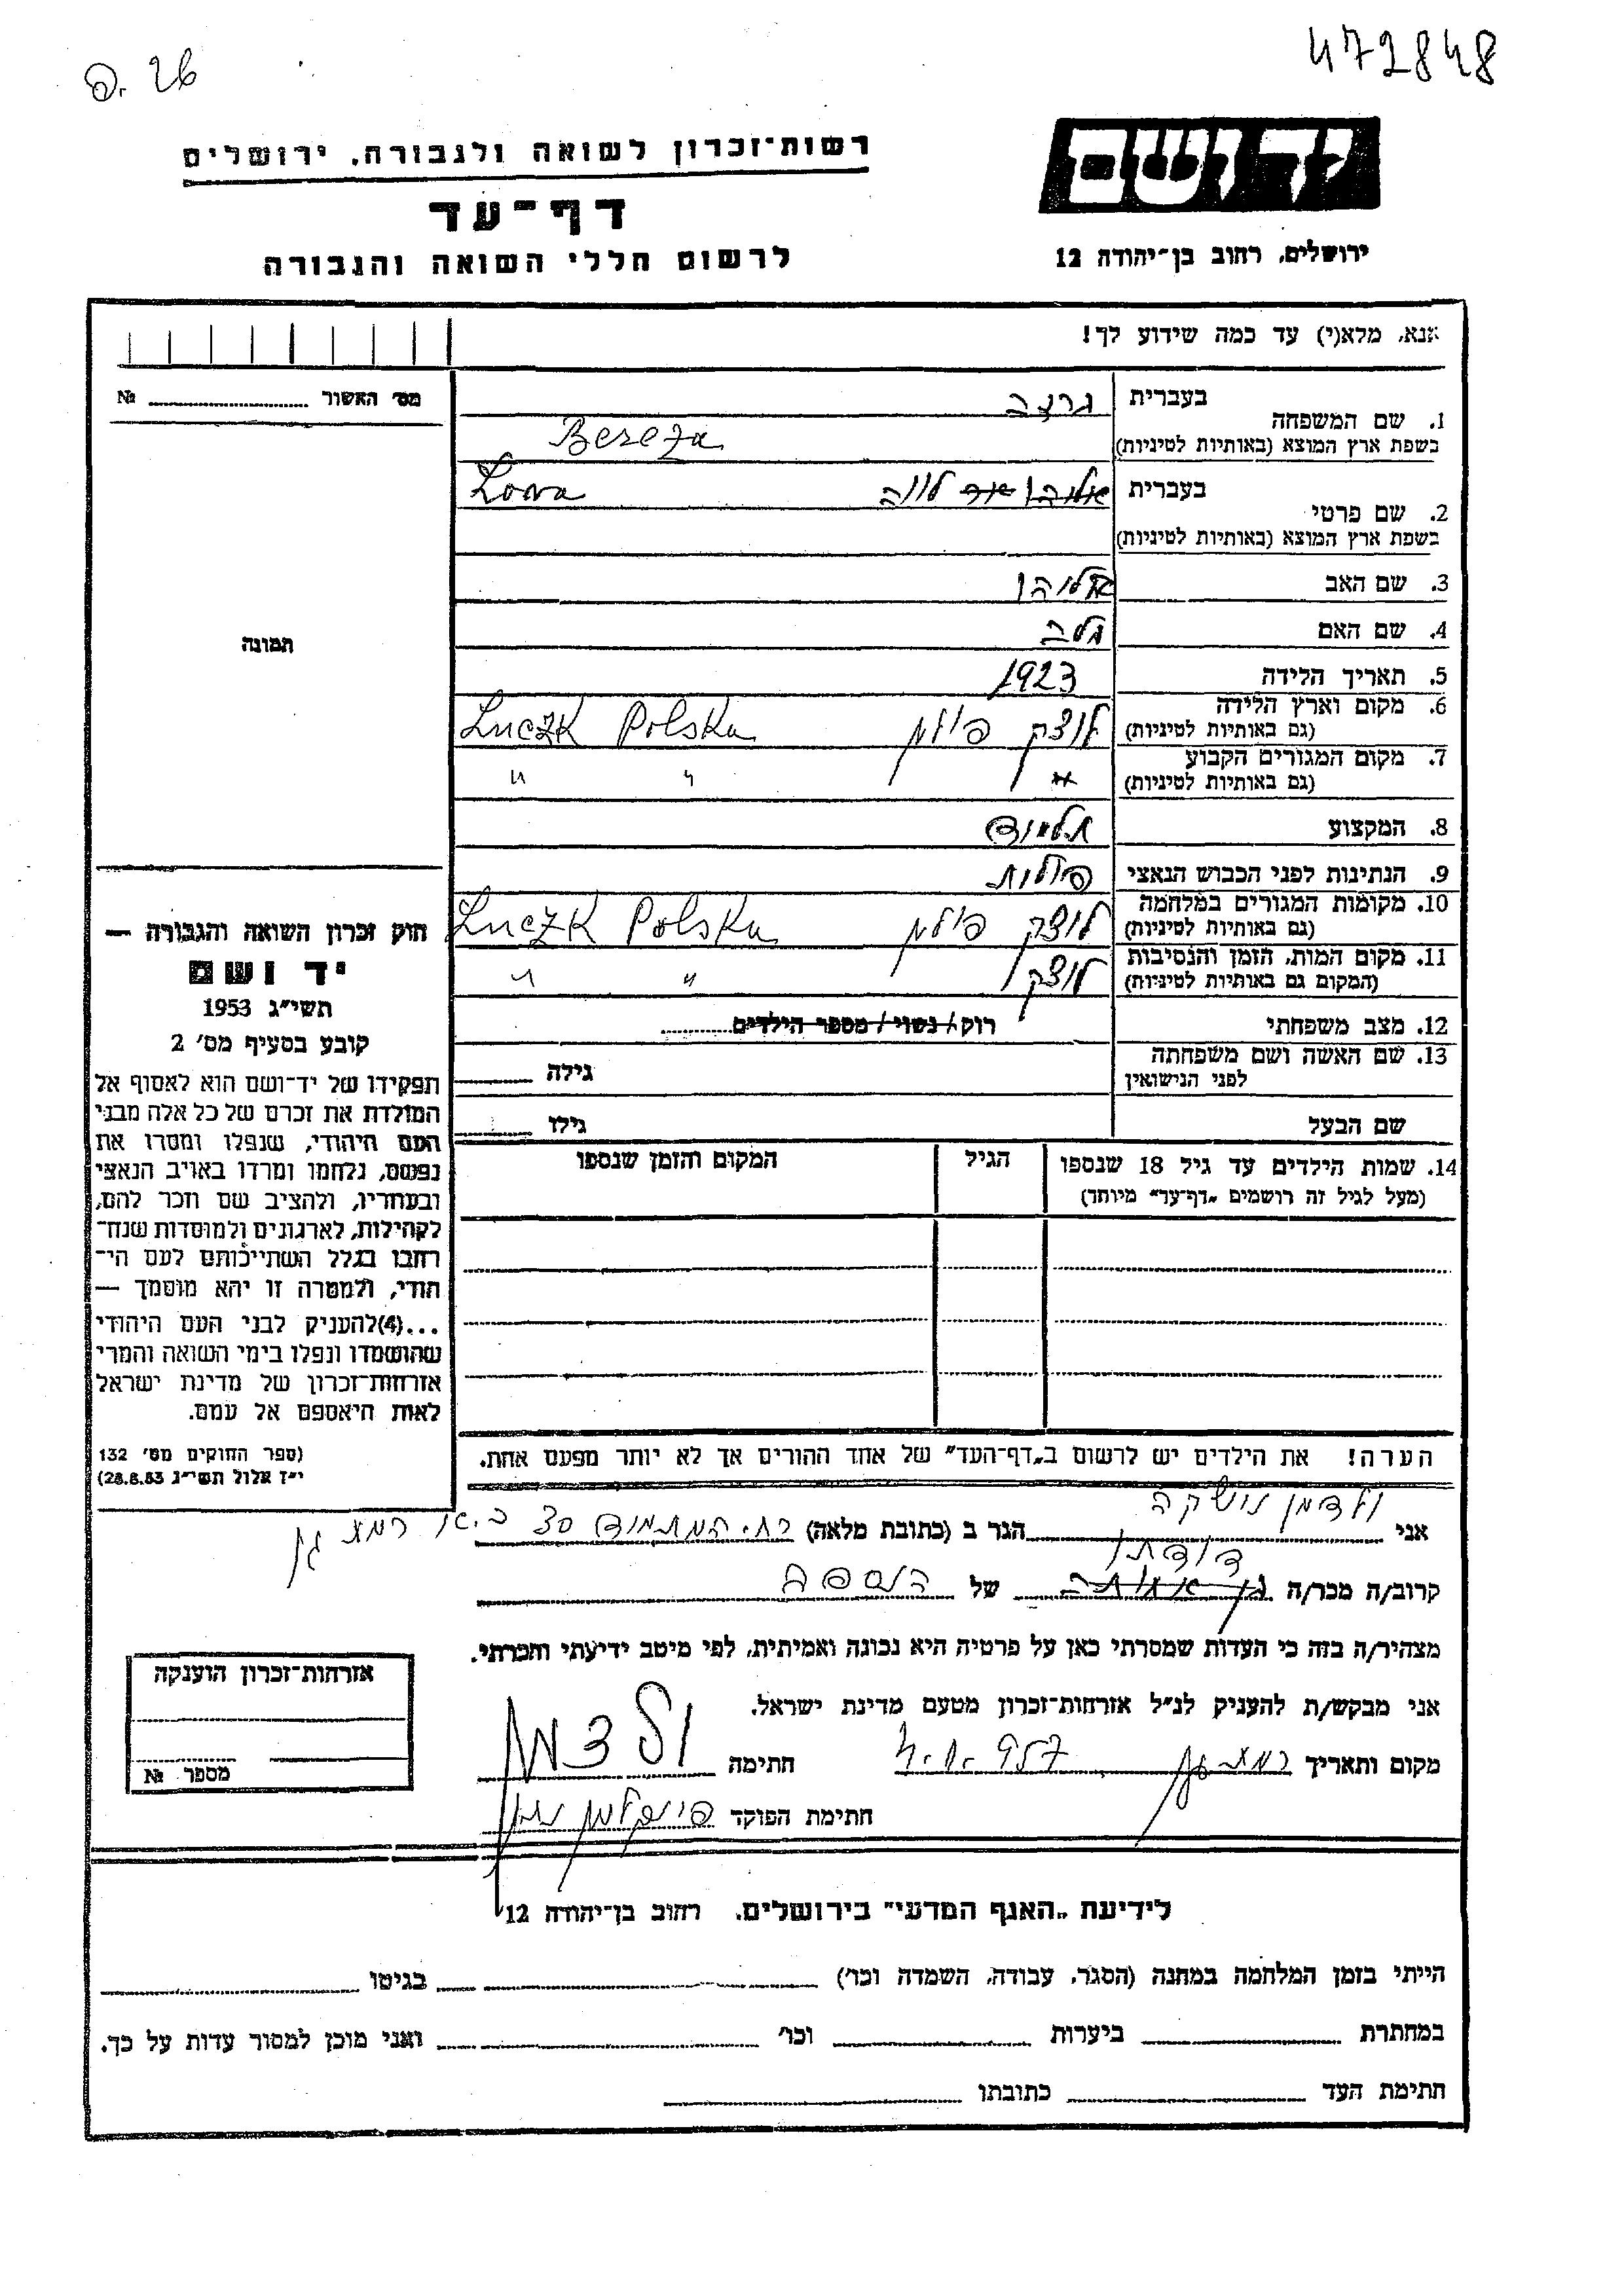 472848
ד. 26
יד ושם
רשות־זכרון לשואה ולגבורה, ירושלים
דף־עד
ירושלים, רחוב בן־יהודה 12
לרשום חללי השואה והגבורה
אנא, מלא(י) עד כמה שידוע לך!
מס׳ האשור № 
1. שם המשפחה
בעברית
ברזה
בשפת ארץ המוצא (באותיות לטיניות)
Bereza
2. שם פרטי
בעברית
לובה Lowa
בשפת ארץ המוצא (באותיות לטיניות)
3. שם האב
אליהו
4. שם האם
תמונה
5. תאריך הלידה
1923
6. מקום וארץ הלידה
(גם באותיות לטיניות)
לוצק פולין Luczk Polska
7. מקום המגורים הקבוע
(גם באותיות לטיניות)
" " "
8. המקצוע
תלמיד
9. הנתינות לפני הכבוש הנאצי
פולנית
10. מקומות המגורים במלחמה
(גם באותיות לטיניות)
לוצק פולין Luczk Polska
11. מקום המות, הזמן והנסיבות
(המקום גם באותיות לטיניות)
לוצק " "
12. מצב משפחתי
רוק / נשוי / מספר הילדים
13. שם האשה ושם משפחתה
לפני הנישואין
גילה
שם הבעל
גילו
14. שמות הילדים עד גיל 18 שנספו
(מעל לגיל זה רושמים „דף־עד״ מיוחד)
הגיל
המקום והזמן שנספו
הערה! את הילדים יש לרשום ב„דף־העד״ של אחד ההורים אך לא יותר מפעם אחת.
חוק זכרון השואה והגבורה —
יד ושם
תשי״ג 1953
קובע בסעיף מס׳ 2
תפקידו של יד־ושם הוא לאסוף אל
המולדת את זכרם של כל אלה מבני
העם היהודי, שנפלו ומסרו את
נפשם, נלחמו ומרדו באויב הנאצי
ובעוזריו, ולהציב שם וזכר להם,
לקהילות, לארגונים ולמוסדות שנח־
רבו בגלל השתייכותם לעם הי־
הודי, ולמטרה זו יהא מוסמך —
...(4)להעניק לבני העם היהודי
שהושמדו ונפלו בימי השואה והמרי
אזרחות־זכרון של מדינת ישראל
לאות היאספם אל עמם.
(ספר החוקים מס׳ 132
י״ז אלול תשי״ג 28.8.53)
אני ולדמן נושקה הגר ב (כתובת מלאה) רח. המתמיד 30 רמת גן
קרוב/ה מכר/ה דודתו של הנספה
מצהיר/ה בזה כי העדות שמסרתי כאן על פרטיה היא נכונה ואמיתית, לפי מיטב ידיעתי והכרתי.
אני מבקש/ת להעניק לנ״ל אזרחות־זכרון מטעם מדינת ישראל.
מקום ותאריך רמת גן חתימה ולדמן
חתימת הפוקד
אזרחות־זכרון הוענקה
מספר №
לידיעת „האגף המדעי״ בירושלים, רחוב בן־יהודה 12
הייתי בזמן המלחמה במחנה (הסגר, עבודה, השמדה וכו׳) בגיטו
במחתרת ביערות וכו׳ ואני מוכן למסור עדות על כך.
חתימת העד כתובתו